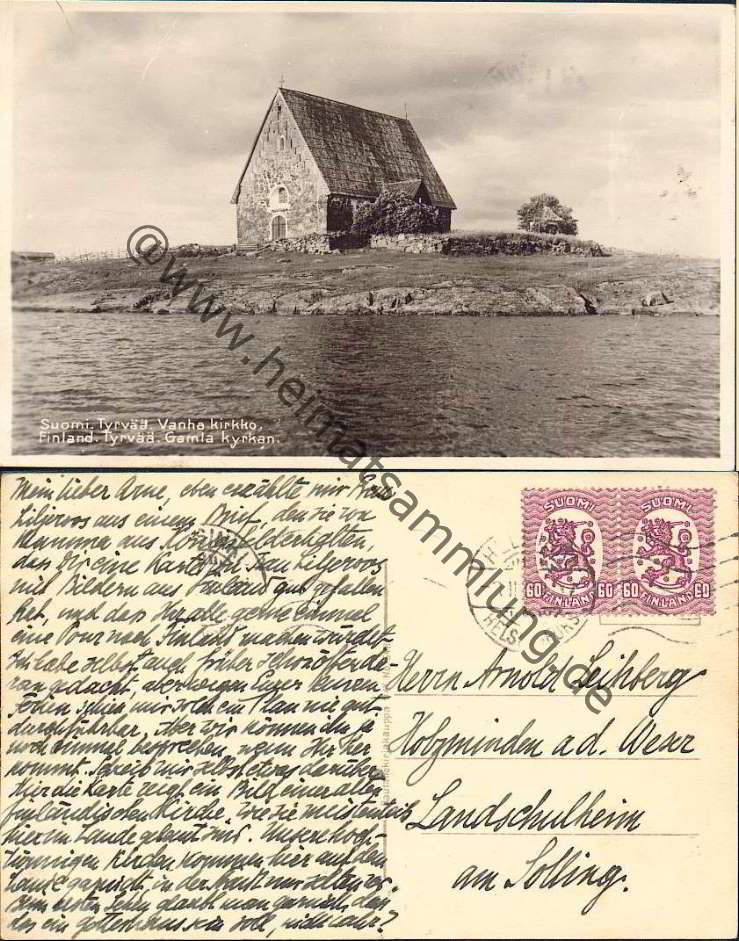 Suomi. Tyrvää. Vanha kirkko.
Finland. Tyrvää. Gamla kyrkan.
@ www.heimatsammlung.de
Mein lieber Arne, eben erzählte mir Frau
Liljeroos aus einem Brief, den sie von
Mamma aus erhalten,
das Dir eine Karte von Frau Liljeroos
mit Bildern aus Finland gut gefallen
hat, und dass Ihr alle gerne einmal
eine Tour nach Finland machen würdet.
Ich habe selbst auch früher schon öfter da-
ran gedacht, aber wegen Eurer kurzen
Ferien schien mir solch ein Plan nie gut
durchführbar. Aber wir können ihn ja
noch einmal besprechen, wenn Ihr her
kommt. Schreib mir selbst etwas darüber.
Hier die Karte zeigt ein Bild einer alten
finländischen Kirche, wie sie meistenteils
hier im Lande gebaut sind. Unsere hoch-
türmigen Kirchen kommen hier auf dem
Lande garnicht, in der Stadt nur selten vor.
Beim ersten Sehen glaubt man garnicht, dass
das ein Gotteshaus sein soll, nicht wahr?
SUOMI SUOMI
60 FINLAND 60 60 FINLAND 60
HELSINKI
HELSINGFORS
Herrn Arnold Leihberg
Holzminden a. d. Weser
Landschulheim
am Solling.